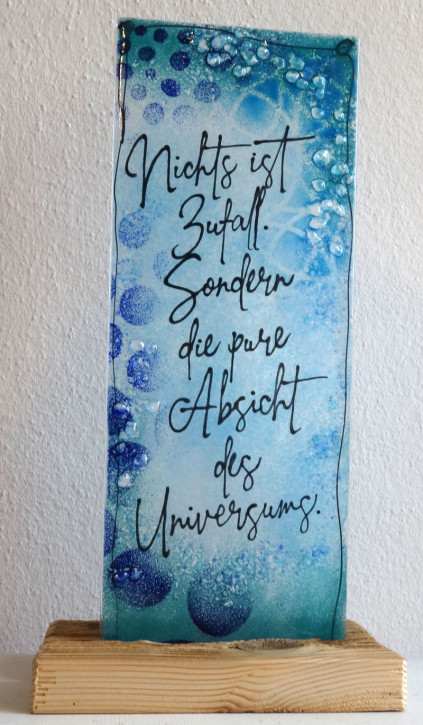 Nichts ist
Zufall.
Sondern
die pure
Absicht
des
Universums.